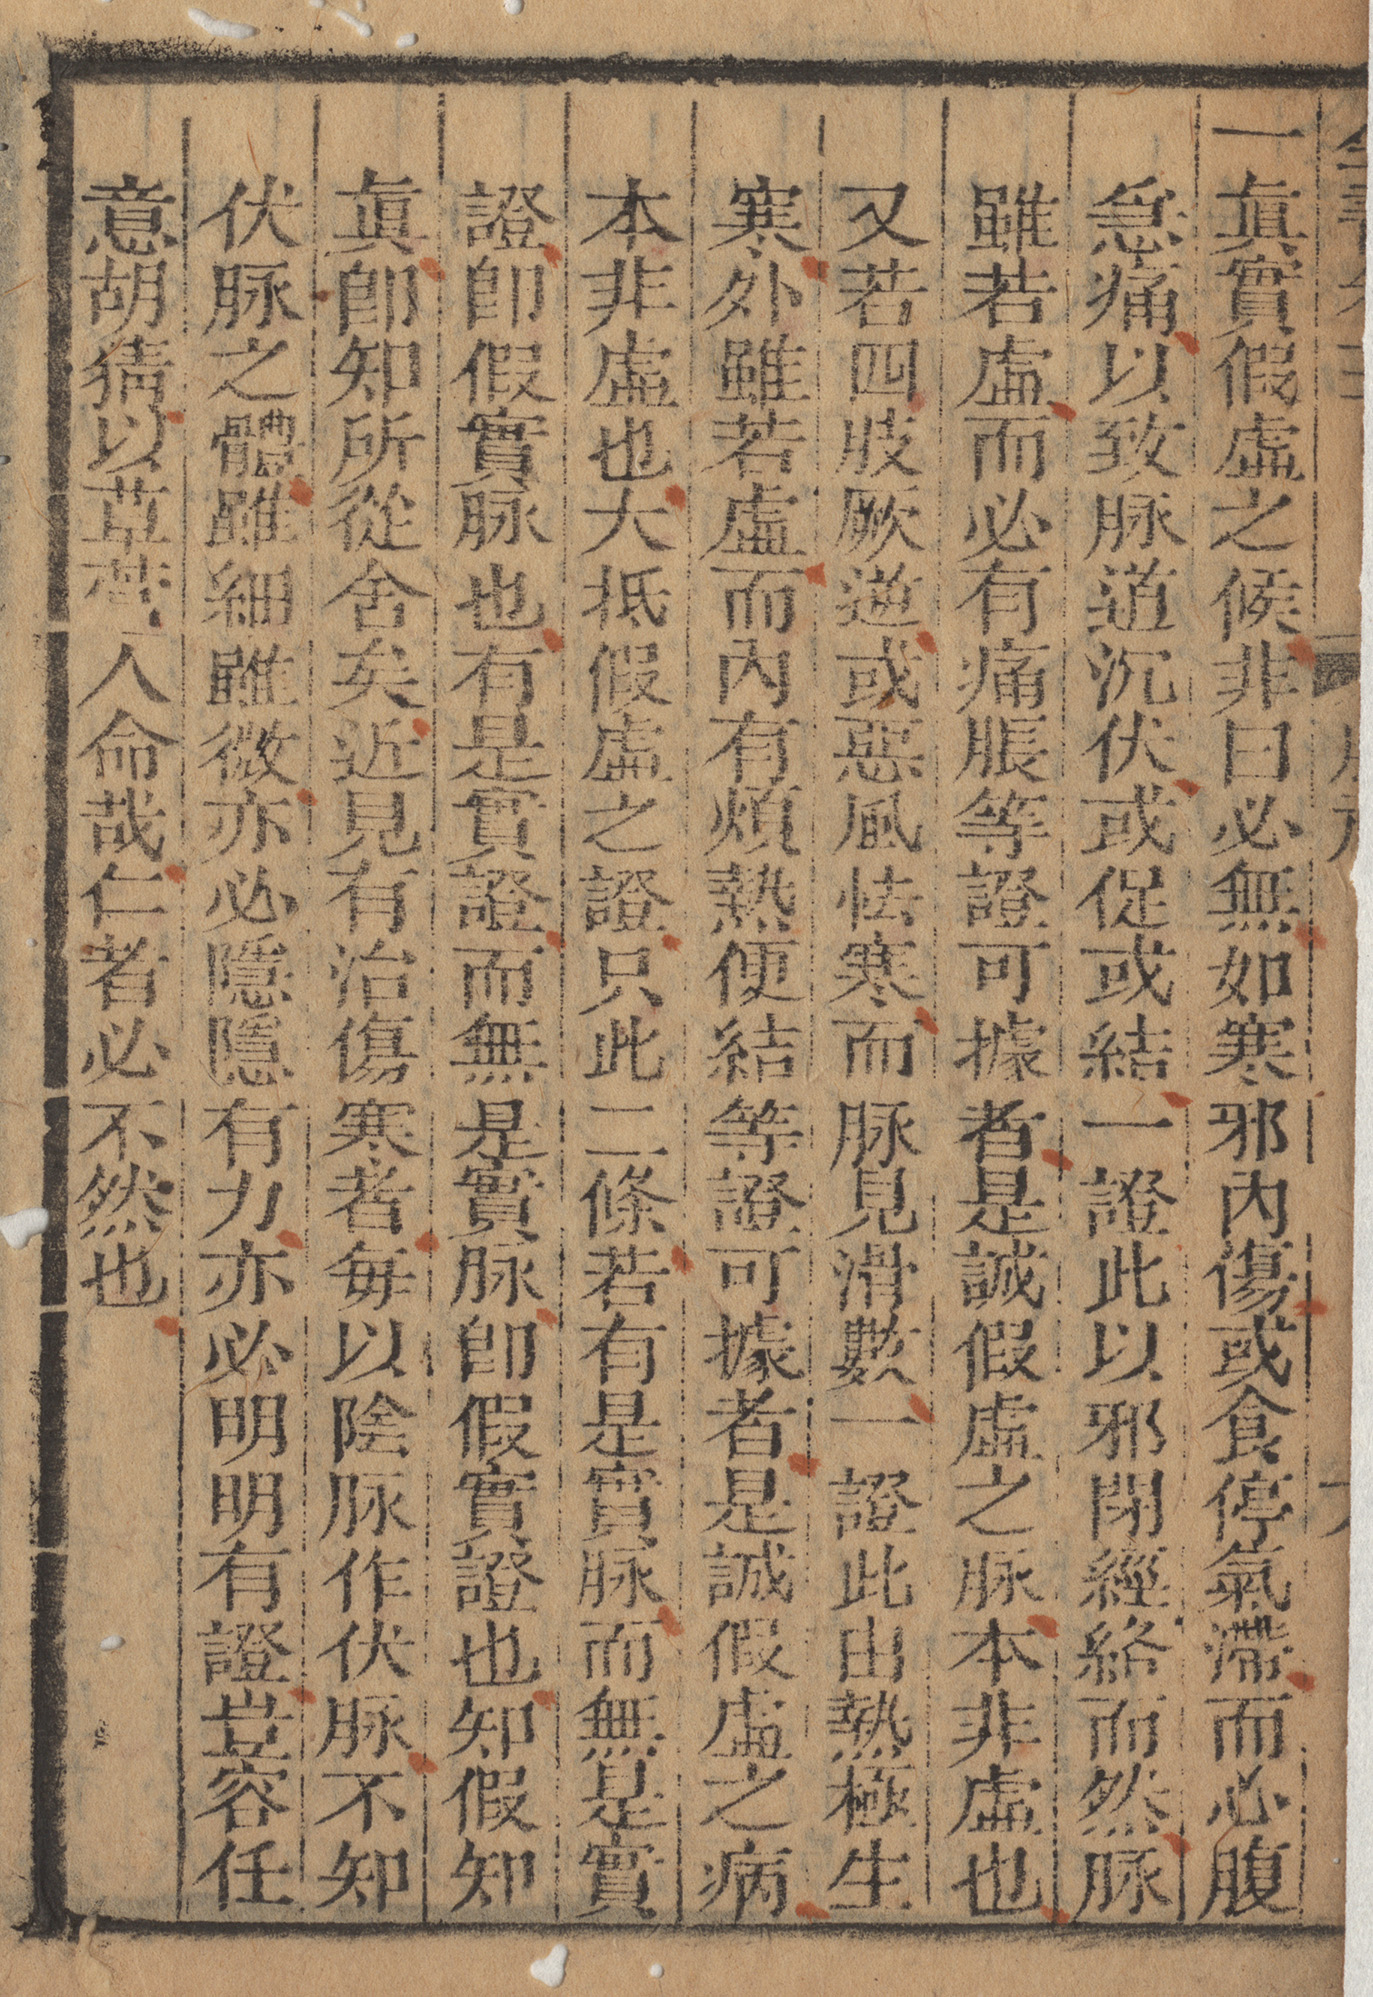 一眞實假虛之候非曰必無如寒邪內傷或食停氣滯而心腹
急痛以致脉道沉伏或促或結一證此以邪閉經絡而然脉
雖若虛而必有痛脹等證可據者是誠假虛之脉本非虛也
又若四肢厥逆或惡風怯寒而脉見滑數一證此由熱極生
寒外雖若虛而內有煩熱便結等證可據者是誠假虛之病
本非虛也大抵假虛之證只此二條若有是實脉而無是實
證卽假實脉也有是實證而無是實脉卽假實證也知假知
眞卽知所從舍矣近見有治傷寒者每以陰脉作伏脉不知
伏脉之體雖細雖微亦必隱隱有力亦必明明有證豈容任
意胡猜以草菅人命哉仁者必不然也